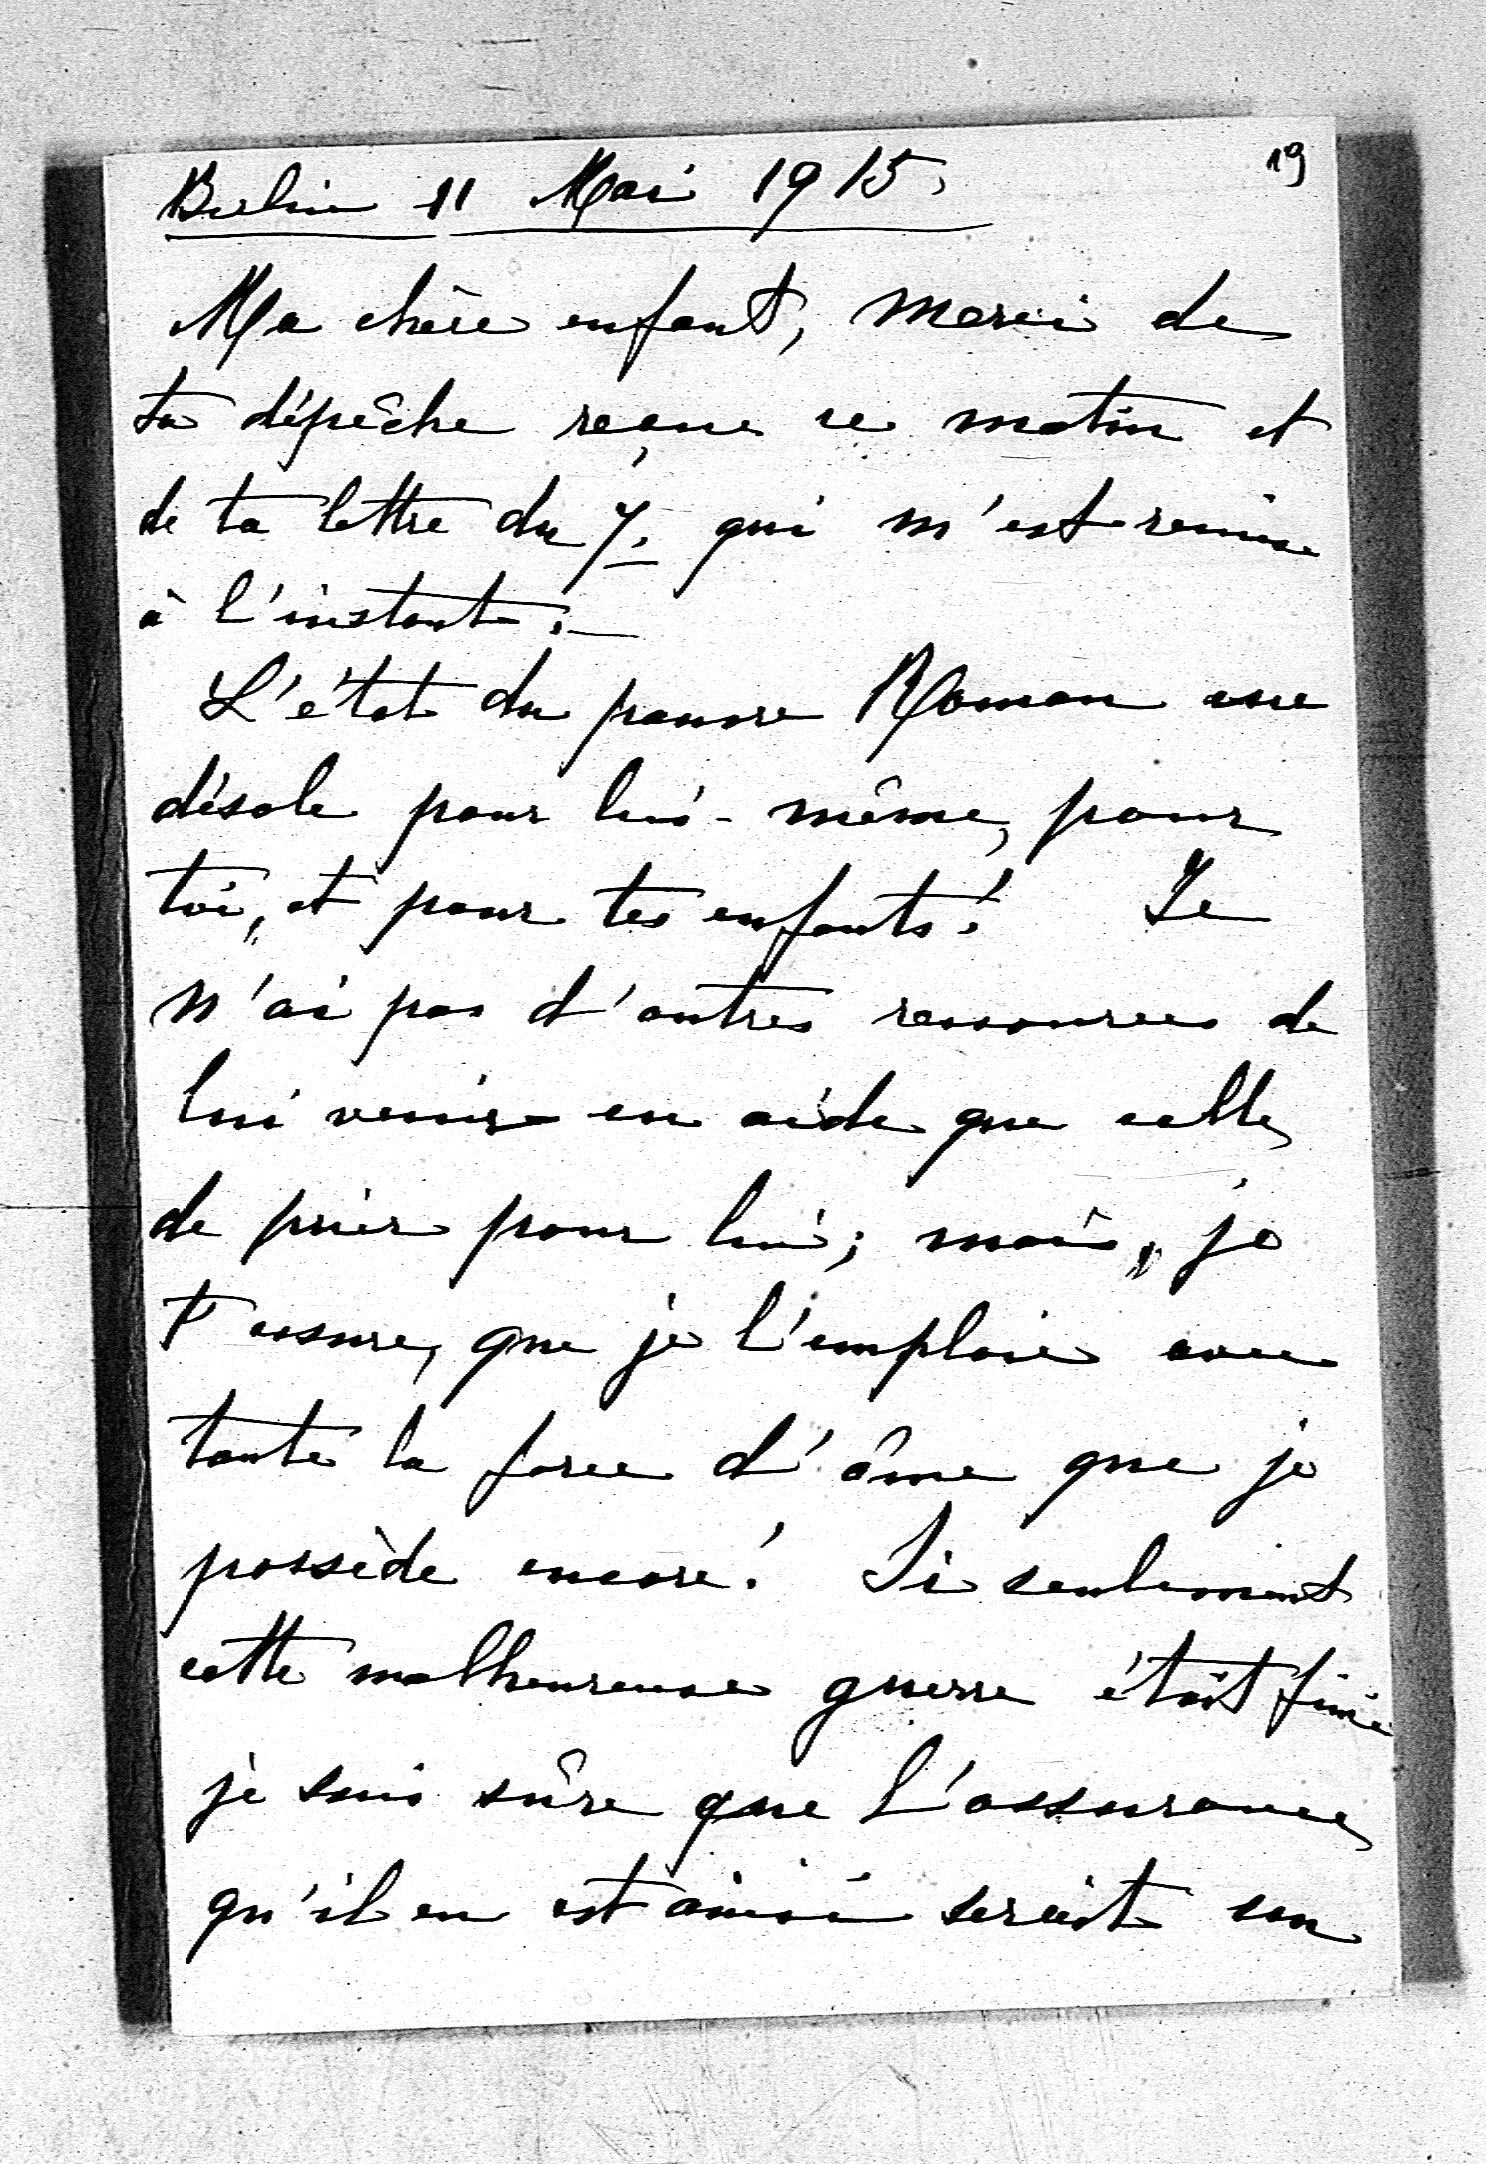 19
Berlin 11 Mai 1915.
Ma chère enfant, merci de
ta dépêche reçue ce matin et
de ta lettre du 7. qui m'est remise
à l'instant.
L'état du pauvre Roman me
désole pour lui-même, pour
toi, et pour tes enfants! Je
n'ai pas d'autres ressources de
lui venir en aide que celle
de prier pour lui; mais, je
t'assure, que je l'emploie avec
toute la force d'âme que je
possède encore! Si seulement
cette malheureuse guerre était finie
je suis sûre que l'assurance
qu'il en est ainsi serait son